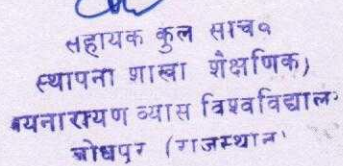 सहायक कुल सचिव
स्थापना शाखा शैक्षणिक)
जयनारायण व्यास विश्वविद्याल
जोधपुर (राजस्थान